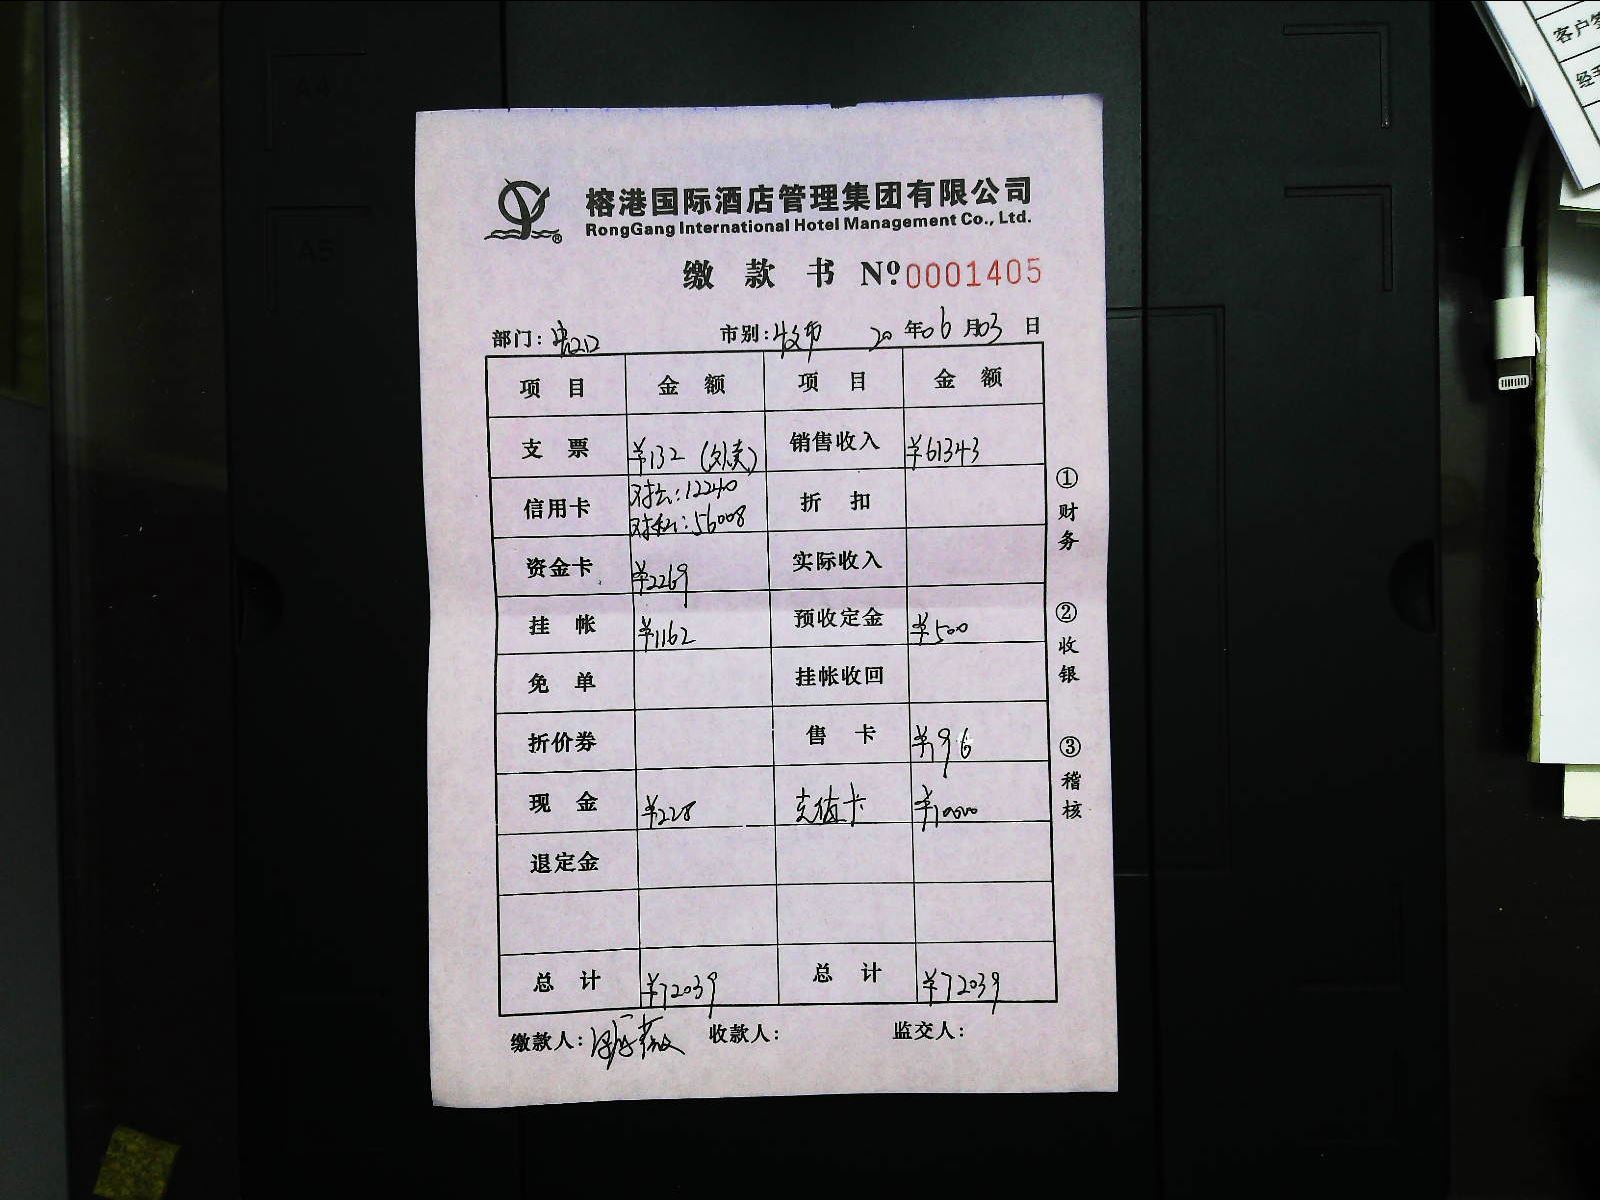 A4
A5
客户
经
榕港国际酒店管理集团有限公司
RongGang International Hotel Management Co., Ltd.
®
缴 款 书 Nº 0001405
部门: 市别: 牧市 20 年 06 月 03 日
项 目 金 额 项 目 金 额
支 票 ¥132 (外卖) 销售收入 ¥61343
信用卡 对公:12240 折 扣
对私:56008
资金卡 ¥2269 实际收入
挂 帐 ¥1162 预收定金 ¥500
免 单 挂帐收回
折价券 售 卡 ¥196
现 金 ¥228 充值卡 ¥10000
退定金
总 计 ¥72039 总 计 ¥72039
缴款人: 收款人: 监交人:
①财务
②收银
③稽核